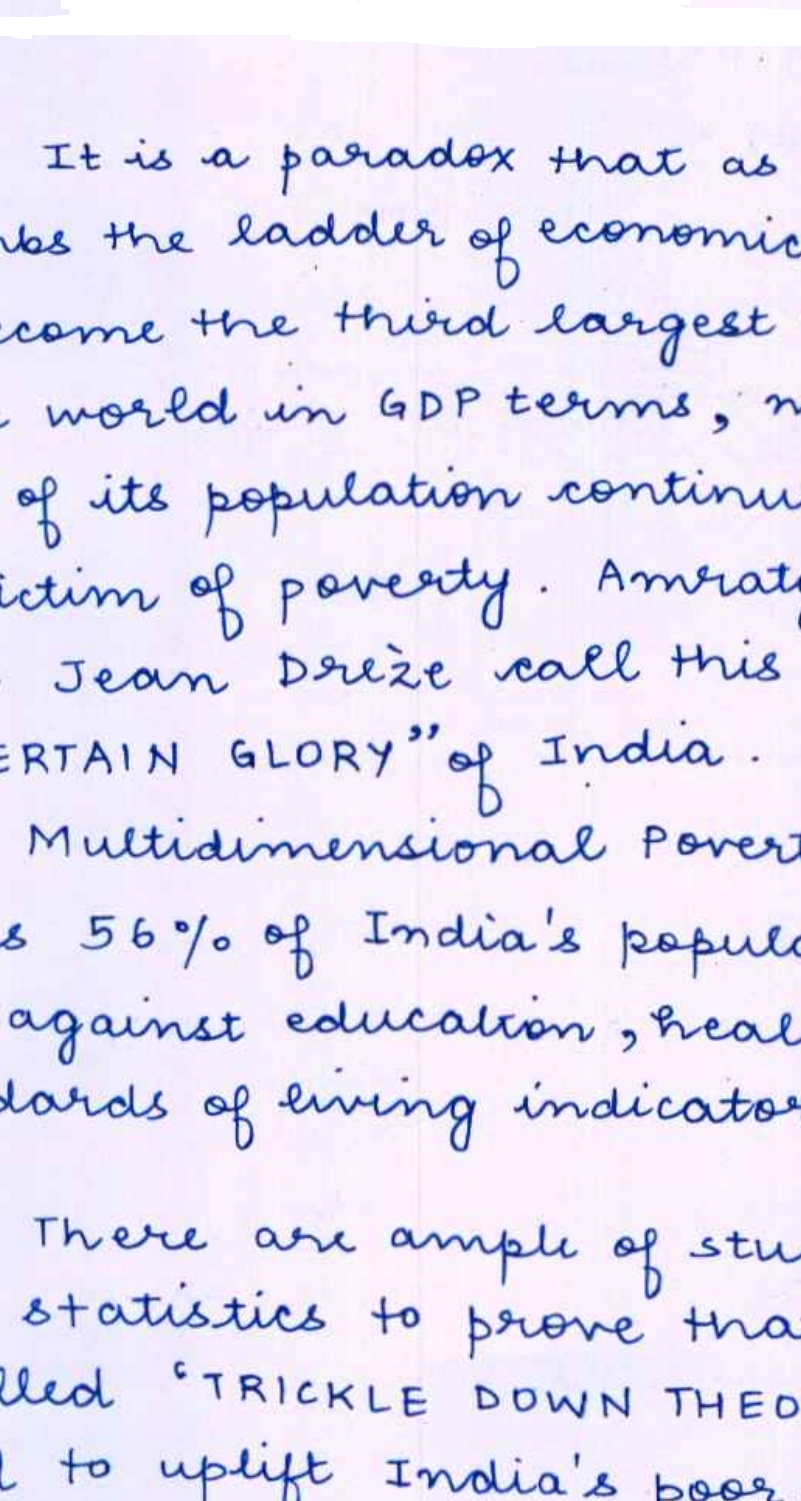 It is a paradox that as
mbs the ladder of economic
ecome the third largest
world in GDP terms,
of its population continu
ictim of poverty. Amrat
Jean Drèze call this
ERTAIN GLORY" of India.
Multidimensional Povert
s 56% of India's popula
against education, heal
dards of living indicator
There are ample of stu
statistics to prove tha
lled 'TRICKLE DOWN THEO
to uplift India's poor